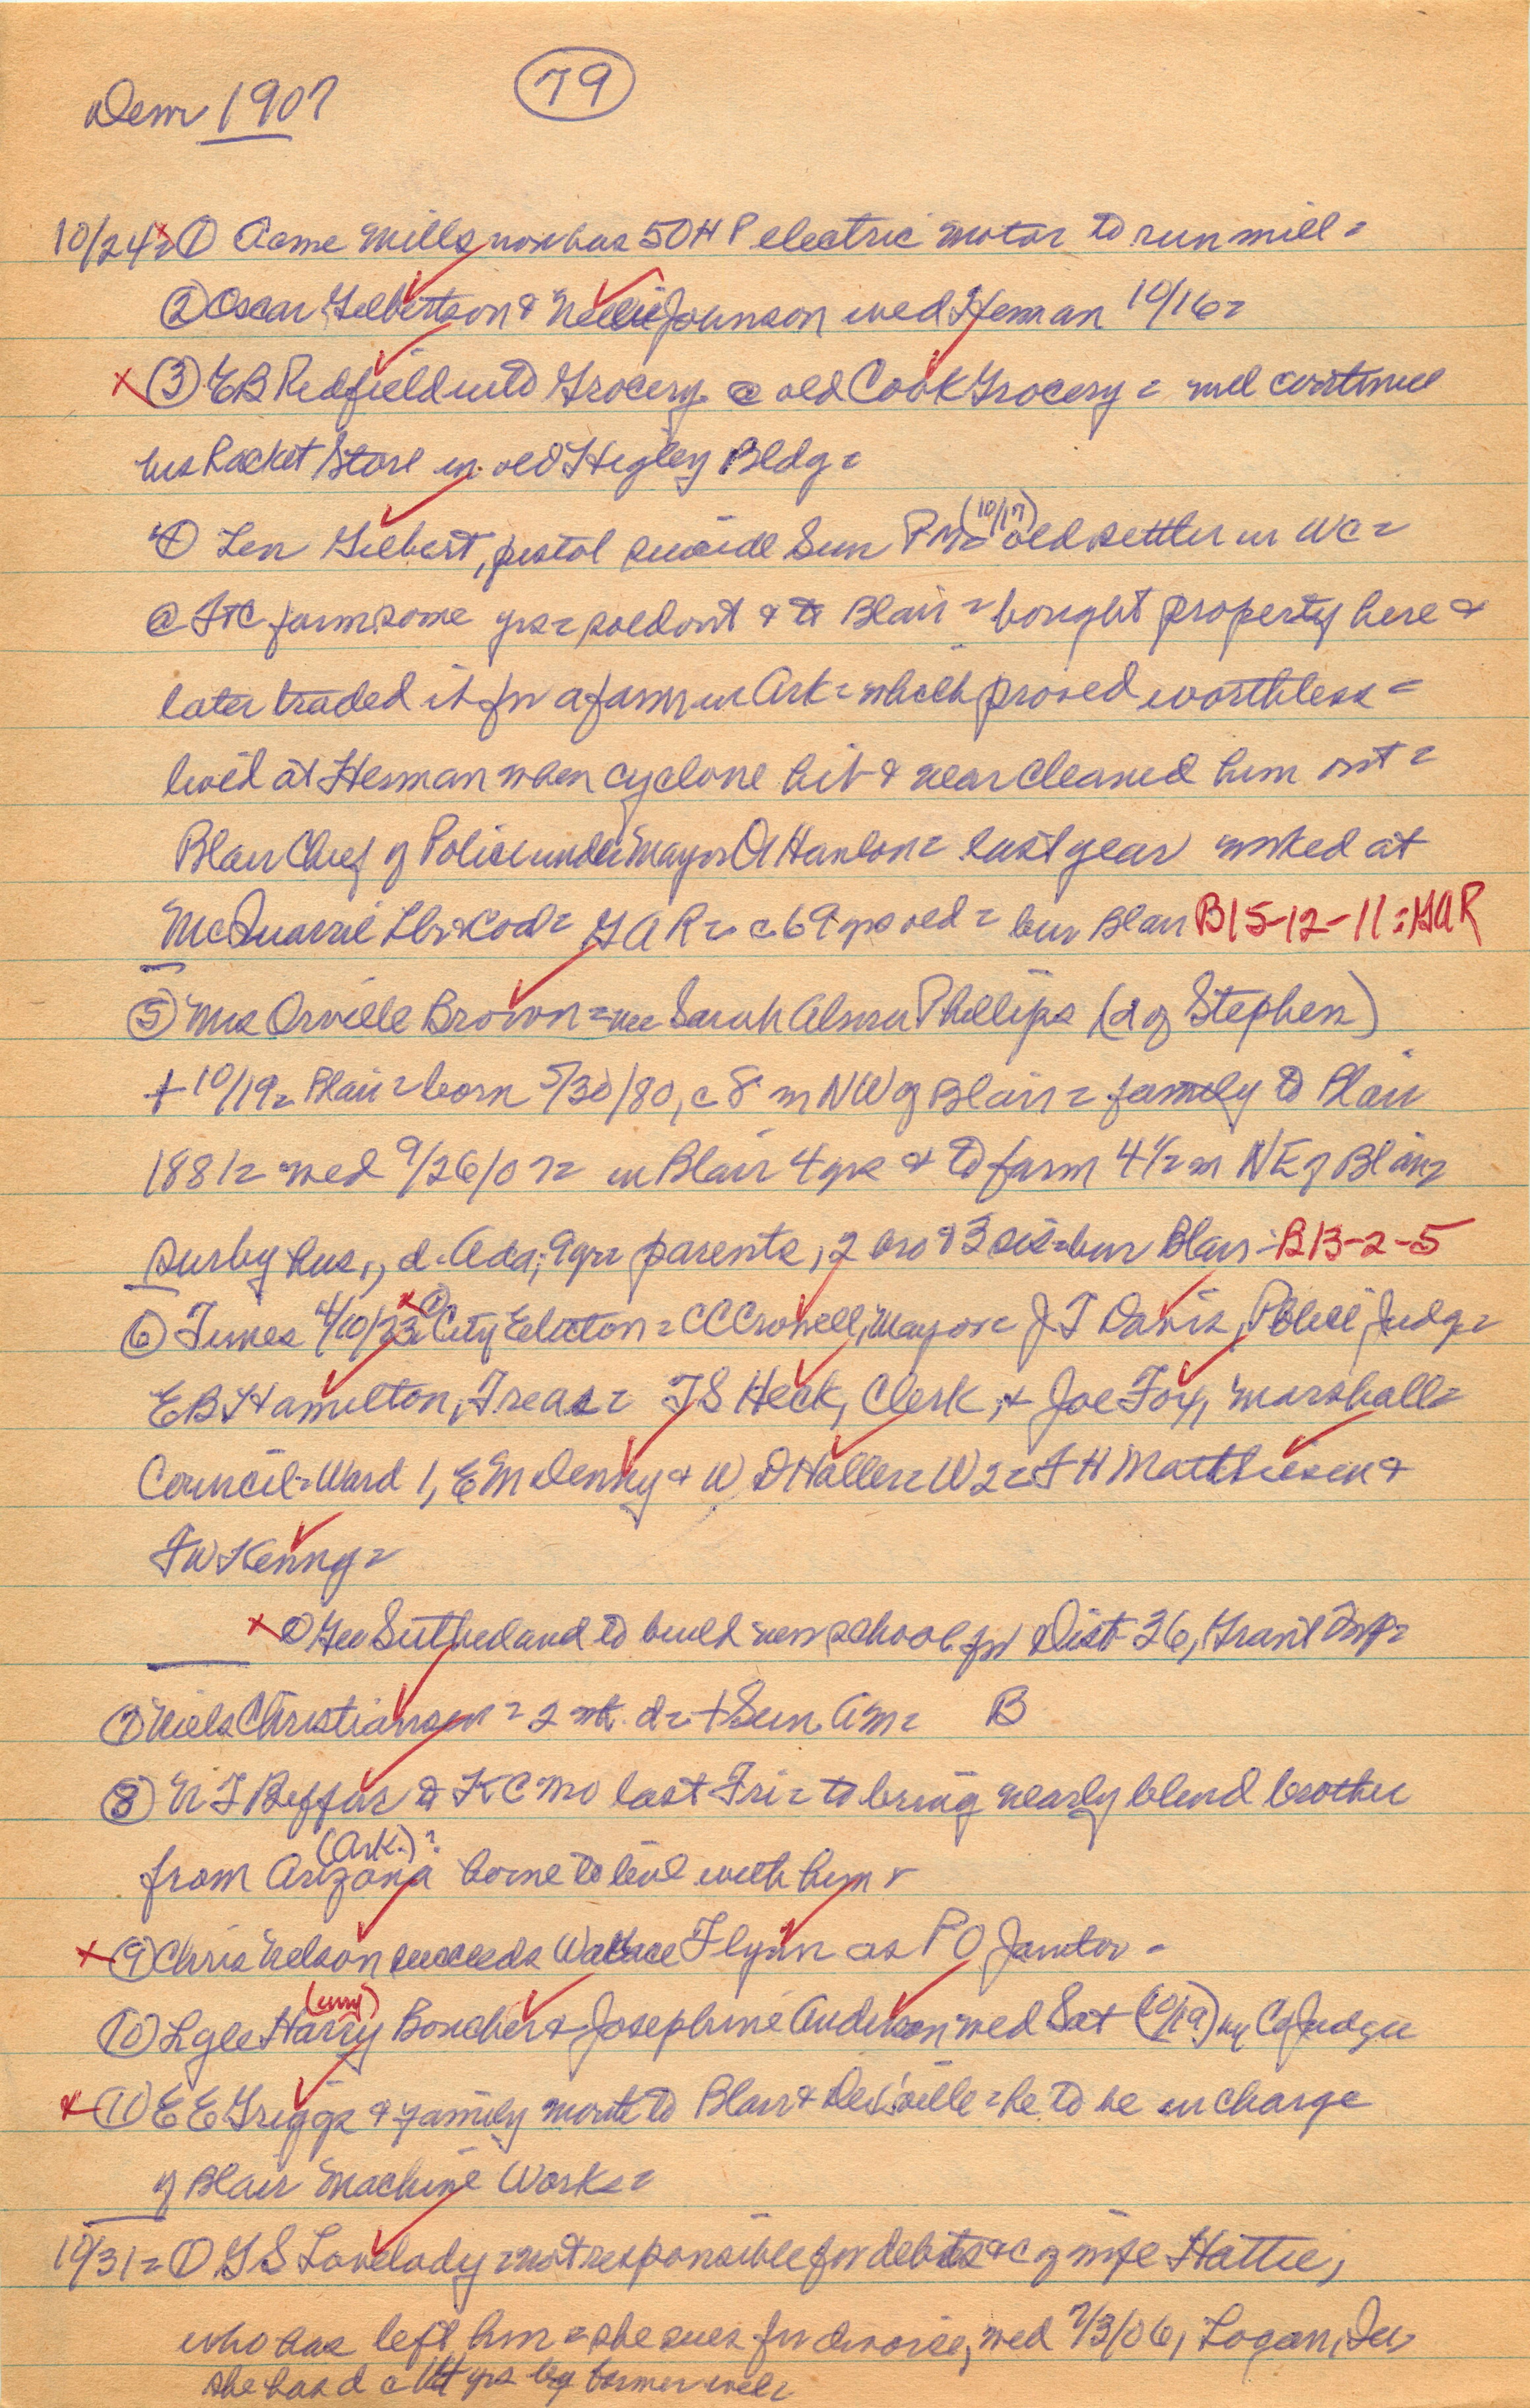 Dem 1907
79
10/24= ① Acme Mills now has 50 H P electric motor to run mill =
② Oscar Gilbertson & Nellie Johnson wed Herman 10/16=
x ③ E B Redfield into Grocery @ old Cook Grocery = will continue
his Racket Store in old Higley Bldg =
④ Len Gilbert, pistol suicide Sun P M = (10/17) old settler in WC =
@ Ft C farm some yrs = sold out & to Blair = bought property here &
later traded it for a farm in Ark = which proved worthless =
lived at Herman when cyclone hit & near cleaned him out =
Blair Chief of Police under Mayor O'Hanlon = last year worked at
McQuarrie Lbr & Coal = G A R = c 69 yrs old = bur Blair B15-12-11: GAR
⑤ Mrs Orville Brown = nee Sarah Alma Phillips (d of Stephen)
† 10/19= Blair = born 5/30/80, c 8 m NW of Blair = family to Blair
1881= wed 9/26/07= in Blair 4 yrs & to farm 4 1/2 m NE of Blair=
sur by hus., d. Ada, 9 yr = parents, 2 bro & 3 sis = bur Blair - B13-2-5
⑥ Times 4/10/73= x ① City Election = C C Crowell, Mayor = J T Davis, Police Judge =
E B Hamilton, Treas = T S Heck, Clerk, & Joe Fox, Marshall =
Council = Ward 1, E M Denny & W D Haller = W 2 = F H Matthiesen &
F W Kenny =
x ② Geo Sutherland to build new school for Dist 36, Grant Twp =
⑦ Niels Christiansen = 2 wk. d = † Sun. Am = B
⑧ N J Beffar to K C Mo last Fri = to bring nearly blind brother
from Arizona (Ark.)? home to live with him =
x ⑨ Chris Nelson succeeds Wallace Flynn as P O Janitor =
⑩ Lgle Harry (erny) Boucher & Josephine Anderson wed Sat (10/19?) by Co Judge
x ⑪ E E Griggs & family move to Blair & De Ville = he to be in charge
of Blair Machine Works =
10/31= ① G S Lovelady = not responsible for debts &c of wife Hattie,
who has left him = she sues for divorce, wed 7/3/06, Logan, Ia
she has d c 14 yrs by former